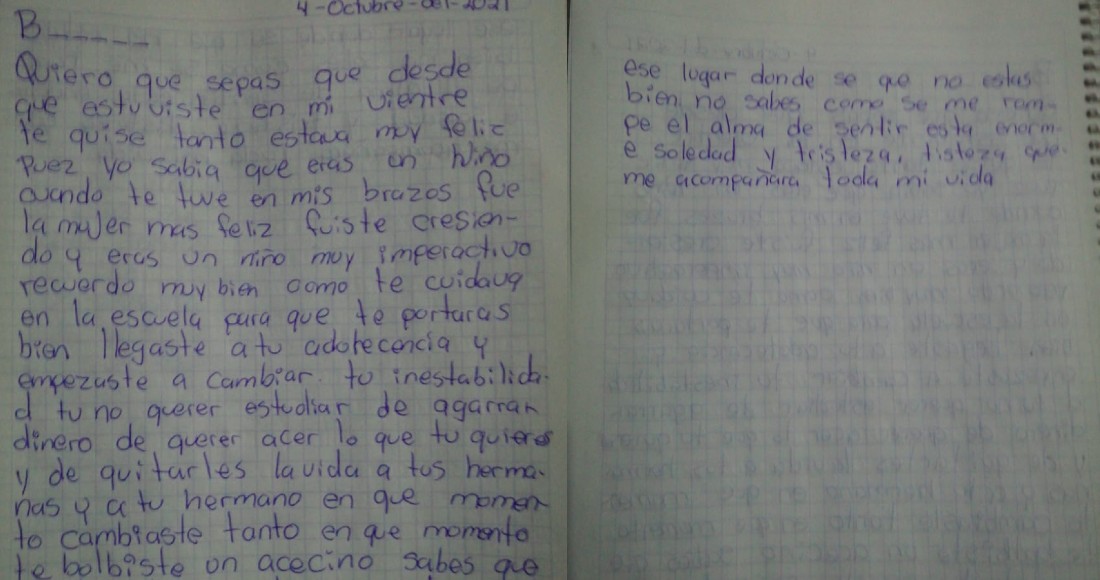 4-Octubre-del-2021
B______
Quiero que sepas que desde
que estuviste en mi vientre
te quise tanto estava muy feliz
puez yo sabia que eras un niño
cuando te tuve en mis brazos fue
la mujer mas feliz fuiste cresien-
do y eras un niño muy imperactivo
recuerdo muy bien como te cuidava
en la escuela para que te portaras
bien llegaste a tu adolecencia y
empezaste a cambiar. tu inestabilida-
d tu no querer estudiar de agarrar
dinero de querer acer lo que tu quieres
y de quitarles la vida a tus herma-
nas y a tu hermano en que momen
to cambiaste tanto en que momento
te bolbiste un acecino sabes que
ese lugar donde se que no estas
bien no sabes como se me rom-
pe el alma de sentir esta enorm-
e soledad y tristeza, tisteza que
me acompañara toda mi vida